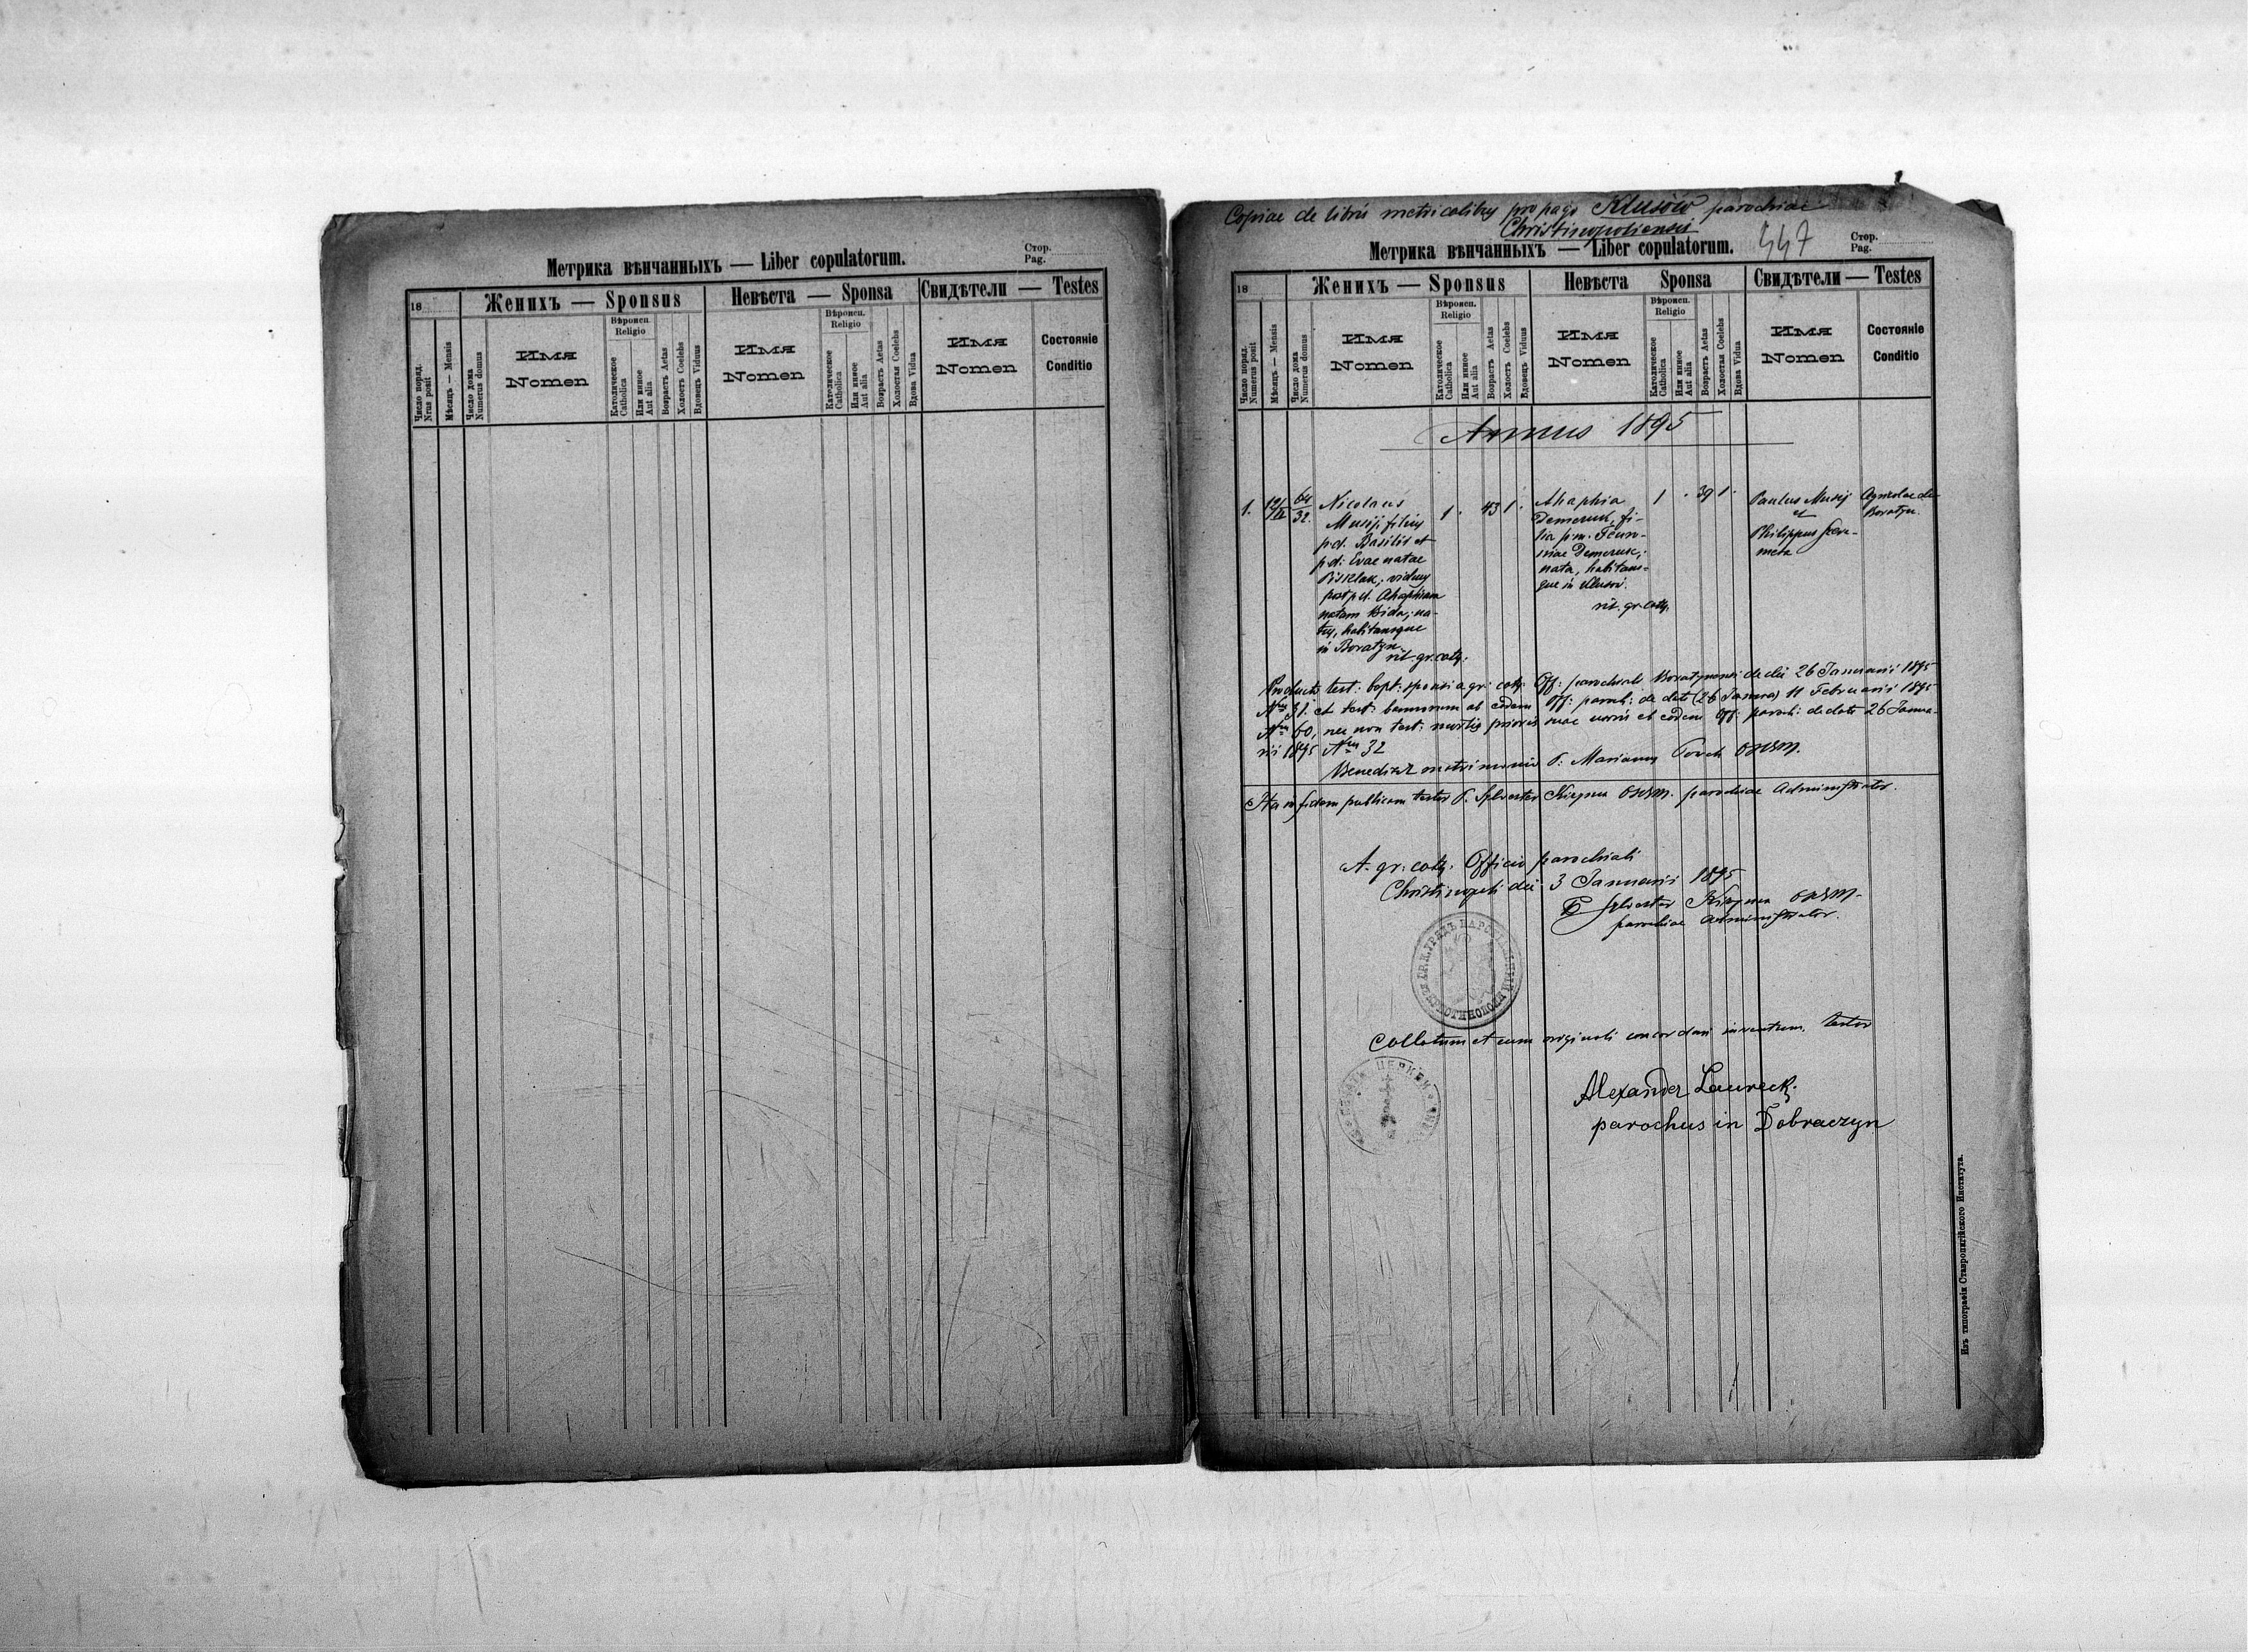 Стор.
Pag.
Метрика вѣнчанныхъ — Liber copulatorum.
18
Женихъ — Sponsus
Невѣста — Sponsa
Свидѣтели — Testes
Число поряд.
Nrus posit
Мѣсяцъ — Mensis
Число дома
Numerus domus
Имя
Nomen
Вѣроисп.
Religio
Католическое
Catholica
Или инное
Aut alia
Возрастъ Aetas
Холостъ Coelebs
Вдовецъ Viduus
Имя
Nomen
Вѣроисп.
Religio
Католическое
Catholica
Или инное
Aut alia
Возрастъ Aetas
Холостая Coelebs
Вдова Vidua
Имя
Nomen
Состояніе
Conditio
Copiae de libris metricalibus pro pago Klusów parochiae
Christinopoliensis
447
Стор.
Pag.
Метрика вѣнчанныхъ — Liber copulatorum.
18
Женихъ — Sponsus
Невѣста Sponsa
Свидѣтели — Testes
Число поряд.
Numerus posit
Мѣсяцъ — Mensis
Число дома
Numerus domus
Имя
Nomen
Вѣроисп.
Religio
Католическое
Catholica
Или инное
Aut alia
Возрастъ Aetas
Холостъ Coelebs
Вдовецъ Viduus
Имя
Nomen
Вѣроисп.
Religio
Католическое
Catholica
Или инное
Aut alia
Возрастъ Aetas
Холостая Coelebs
Вдова Vidua
Имя
Nomen
Состояніе
Conditio
Annus 1895
1.
64
32.
Nicolaus
Musij, filius
p.d. Basilii et
p.d: Evae natae
viduus
post p.d. Ahaphiam
natam Bida; na-
tus, habitansque
in Boratyn.
rit. gr. cath.
1 . 43 1 .
Ahaphia
Demcruk, fi-
lia p.m.
Demcruk;
nata, habitans-
que in Klusow.
rit. gr. cath.
1 . 39 1 .
Paulus Musij
et
Philippus
Agricolae de
Boratyn.
Producta test: bapt: sponsi a gr: cath: Off: parochiali Boratynensi de die 26 Januarii 1895
Nro 31. et test: bannorum ab eodem Off: paroch: de dato (26 Januar) 11 Februarii 1895
Nro 60, nec non test: mortis prioris suae uxoris ab eodem Off: paroch: de dato 26 Janua-
rii 1895 Nro 32
Benedixit matrimonio P. Marianus OSBM.
Ita in fidem publicam testor P. Sylvester OSBM. parochiae Administrator.
A gr: cath: Officio parochiali
Christinopoli die 3 Januarii 1895
P Sylvester OSBM.
parochiae Administrator.
Collatum et cum originali concordans inventum, testor
Alexander Laureck.
parochus in Dobraczyn
Изъ типографіи Ставропигійского Института.